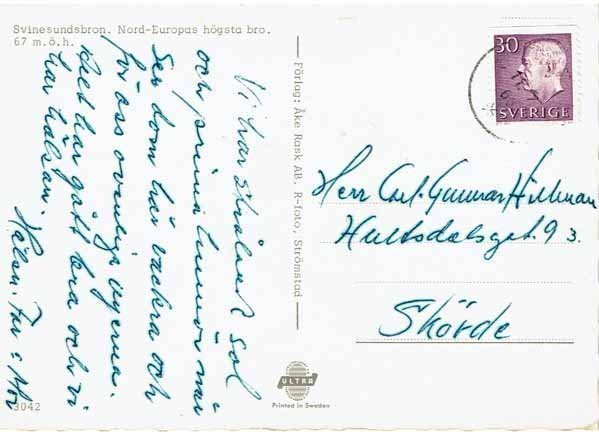 Svinesundsbron. Nord-Europas högsta bro.
67 m.ö.h.
Vi har strålande sol
och prima humör när
Ser dom här vackra och
för oss ovanliga vyerna.
Det har gått bra och vi
har hälsan.
Häls. Far o Mor
3042
Förlag: Åke Rask AB. R-foto, Strömstad
ULTRA
Printed in Sweden
30
SVERIGE
Herr Carl-Gunnar Hillman
Hultsdalsgat. 93.
Skövde